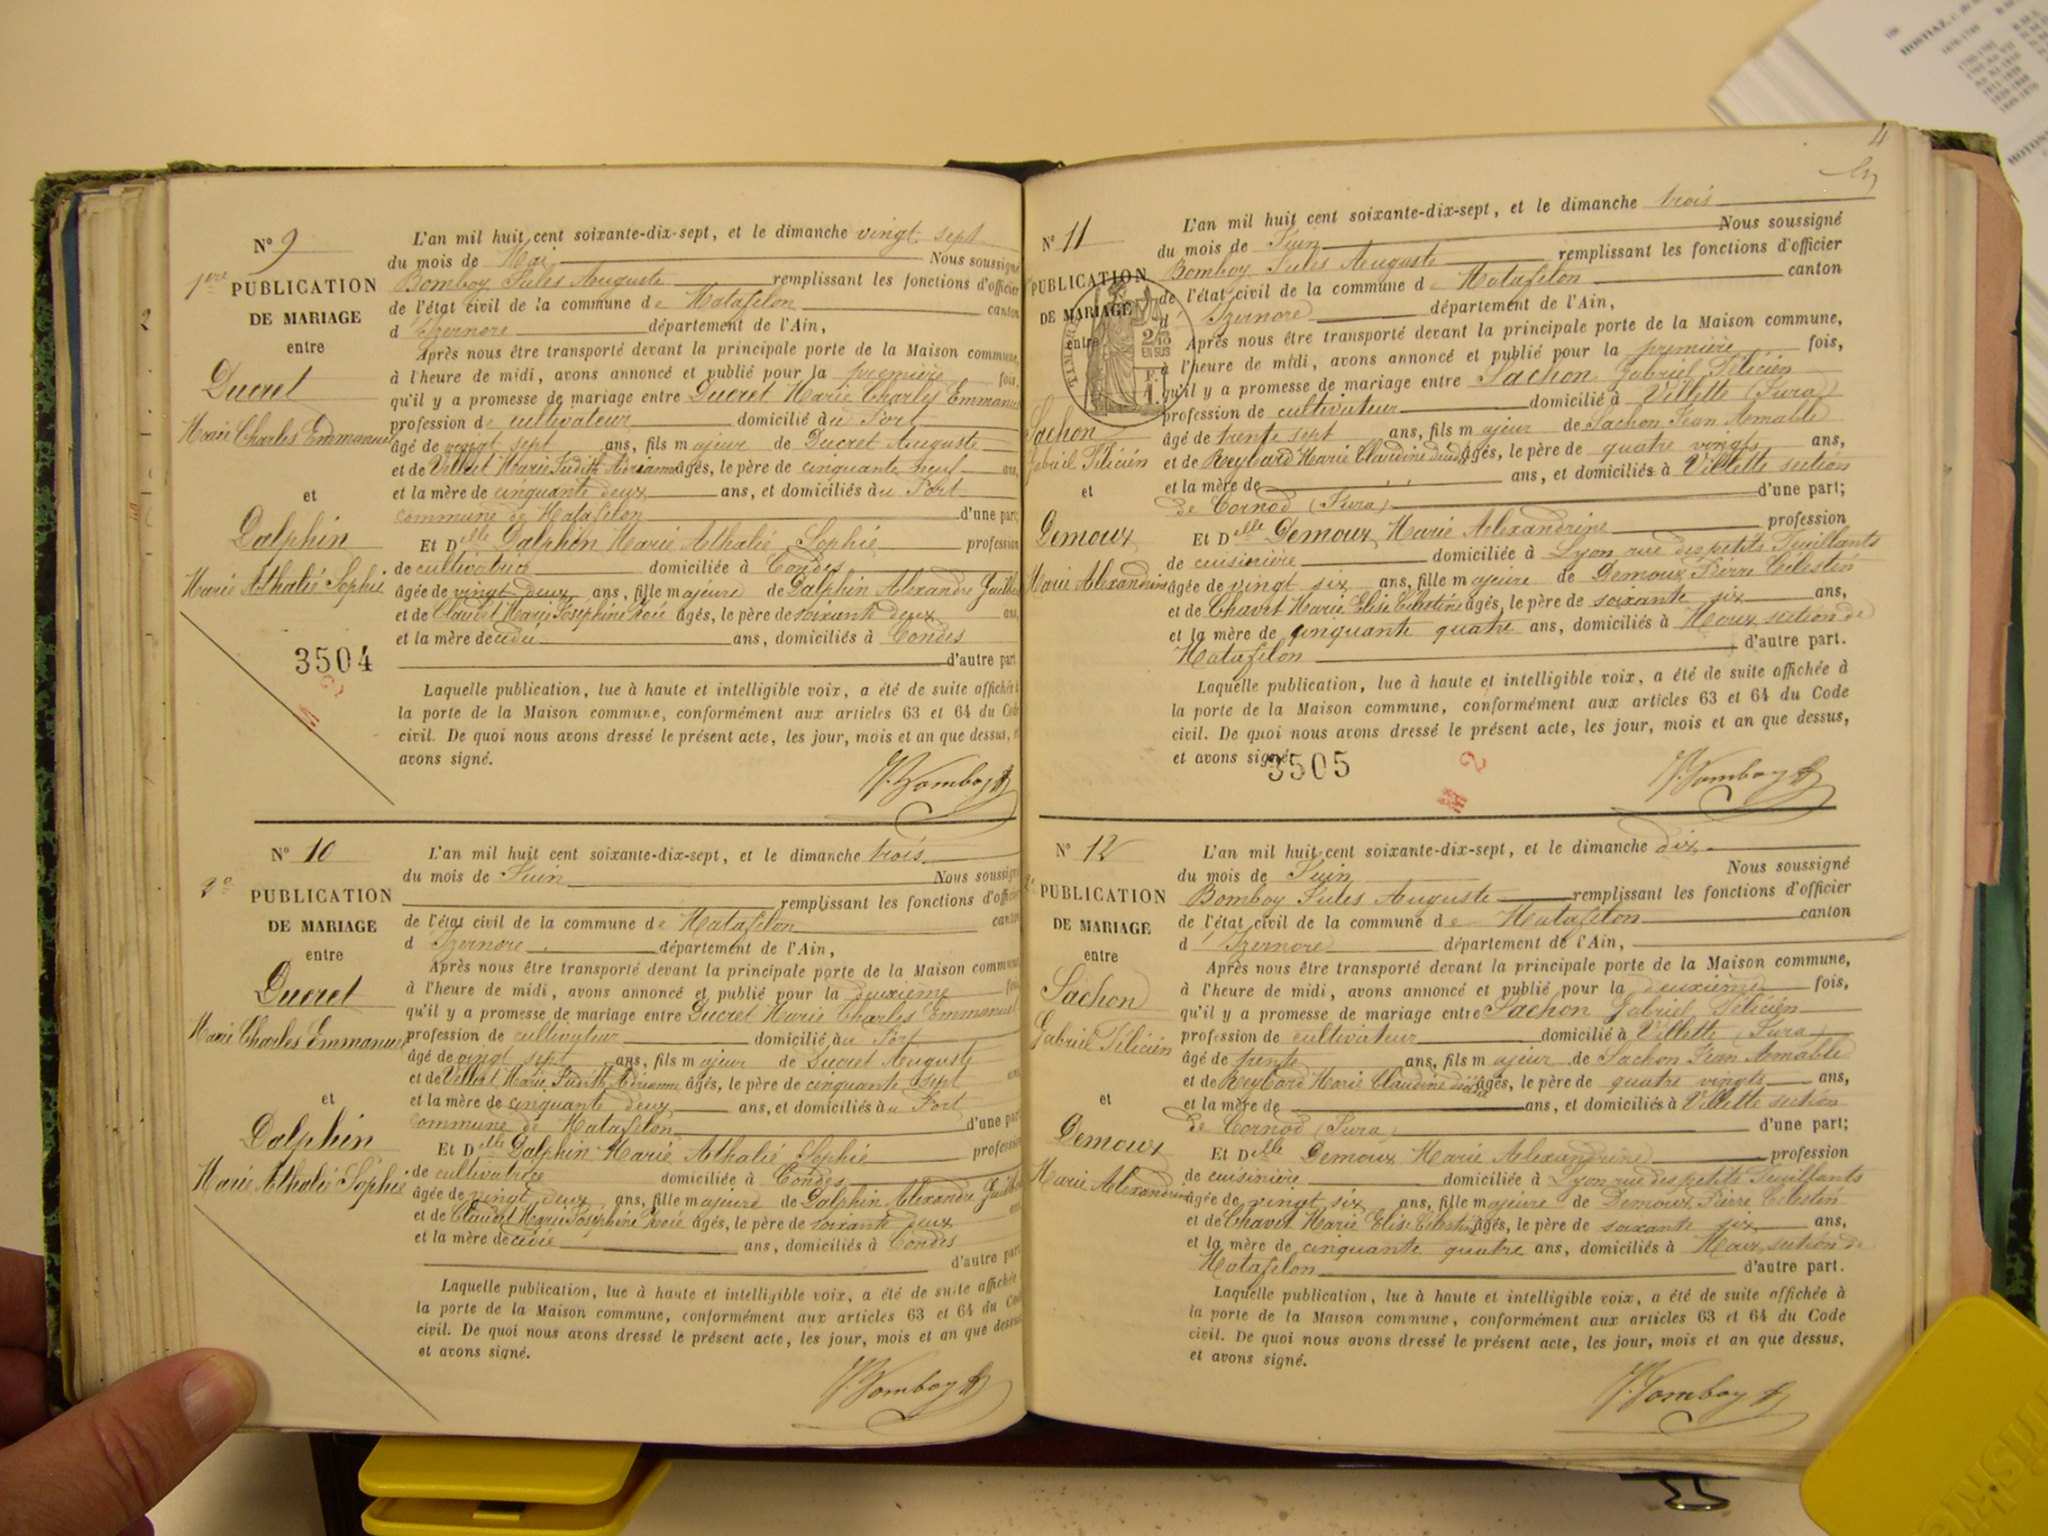 N° 9
1ère PUBLICATION
DE MARIAGE
entre
Ducret
Marie Charles Emmanuel
et
Dalphin
Marie Athalie Sophie
3504
L'an mil huit cent soixante-dix-sept, et le dimanche vingt sept
du mois de Mai Nous soussigné
Bomboy Jules Auguste remplissant les fonctions d'officier
de l'état civil de la commune de Matafelon canton
d'Izernore département de l'Ain,
Après nous être transporté devant la principale porte de la Maison commune,
à l'heure de midi, avons annoncé et publié pour la première fois,
qu'il y a promesse de mariage entre Ducret Marie Charles Emmanuel
profession de cultivateur domicilié au Port
âgé de vingt sept ans, fils majeur de Ducret Auguste
et de Villet Marie Judith Adrianne âgés, le père de cinquante neuf ans,
et la mère de cinquante deux ans, et domiciliés au Port
commune de Matafelon d'une part
Et Delle Dalphin Marie Athalie Sophie profession
de cultivatrice domiciliée à Condes
âgée de vingt deux ans, fille majeure de Dalphin Alexandre
et de Claudet Marie Joséphine Zoé âgés, le père de soixante deux ans,
et la mère décédée ans, domiciliés à Condes
d'autre part
Laquelle publication, lue à haute et intelligible voix, a été de suite affichée à
la porte de la Maison commune, conformément aux articles 63 et 64 du Code
civil. De quoi nous avons dressé le présent acte, les jour, mois et an que dessus, et
avons signé.
J. Bomboy
N° 10
2e PUBLICATION
DE MARIAGE
entre
Ducret
Marie Charles Emmanuel
et
Dalphin
Marie Athalie Sophie
L'an mil huit cent soixante-dix-sept, et le dimanche trois
du mois de Juin Nous soussigné
remplissant les fonctions d'officier
de l'état civil de la commune de Matafelon canton
d Izernore département de l'Ain,
Après nous être transporté devant la principale porte de la Maison commune
à l'heure de midi, avons annoncé et publié pour la deuxième fois
qu'il y a promesse de mariage entre Ducret Marie Charles Emmanuel
profession de cultivateur domicilié au Port
âgé de vingt sept ans, fils majeur de Ducret Auguste
et de Villet Marie Judith Adrianne âgés, le père de cinquante sept ans
et la mère de cinquante deux ans, et domiciliés au Port
commune de Matafelon d'une part
Et Delle Dalphin Marie Athalie Sophie profession
de cultivatrice domiciliée à Condes
âgée de vingt deux ans, fille majeure de Dalphin Alexandre
et de Claudet Marie Joséphine Zoé âgés, le père de soixante deux ans
et la mère ans, domiciliés à Condes
d'autre part
Laquelle publication, lue à haute et intelligible voix, a été de suite affichée
la porte de la Maison commune, conformément aux articles 63 et 64 du Code
civil. De quoi nous avons dressé le présent acte, les jour, mois et an que dessus
et avons signé.
J. Bomboy
4
N° 11
PUBLICATION
DE MARIAGE
entre
TIMBRE
2/10
EN SUS
F.
1.
Sachon
Gabriel Félicien
et
Demoux
Marie Alexandrine
L'an mil huit cent soixante-dix-sept, et le dimanche trois
du mois de Juin Nous soussigné
Bomboy Jules Auguste remplissant les fonctions d'officier
de l'état civil de la commune de Matafelon canton
d'Izernore département de l'Ain,
Après nous être transporté devant la principale porte de la Maison commune,
à l'heure de midi, avons annoncé et publié pour la première fois,
qu'il y a promesse de mariage entre Sachon Gabriel Félicien
profession de cultivateur domicilié à Villette (Jura)
âgé de trente sept ans, fils majeur de Sachon Jean Amable
et de Reybard Marie Claudine âgés, le père de quatre vingts ans,
et la mère de ans, et domiciliés à Villette section
de Cornod (Jura) d'une part;
Et Delle Demoux Marie Alexandrine profession
de cuisinière domiciliée à Lyon rue des petits Feuillants
âgée de vingt six ans, fille majeure de Demoux Pierre Célestin
et de Chavet Marie Elise Célestine âgés, le père de soixante six ans,
et la mère de cinquante quatre ans, domiciliés à Mons section de
Matafelon d'autre part.
Laquelle publication, lue à haute et intelligible voix, a été de suite affichée à
la porte de la Maison commune, conformément aux articles 63 et 64 du Code
civil. De quoi nous avons dressé le présent acte, les jour, mois et an que dessus,
et avons signé.
3505
J. Bomboy
N° 12
PUBLICATION
DE MARIAGE
entre
Sachon
Gabriel Félicien
et
Demoux
Marie Alexandrine
L'an mil huit cent soixante-dix-sept, et le dimanche dix
du mois de Juin Nous soussigné
Bomboy Jules Auguste remplissant les fonctions d'officier
de l'état civil de la commune de Matafelon canton
d'Izernore département de l'Ain,
Après nous être transporté devant la principale porte de la Maison commune,
à l'heure de midi, avons annoncé et publié pour la deuxième fois,
qu'il y a promesse de mariage entre Sachon Gabriel Félicien
profession de cultivateur domicilié à Villette (Jura)
âgé de trente ans, fils majeur de Sachon Jean Amable
et de Reybard Marie Claudine âgés, le père de quatre vingts ans,
et la mère de ans, et domiciliés à Villette section
de Cornod (Jura) d'une part;
Et Delle Demoux Marie Alexandrine profession
de cuisinière domiciliée à Lyon rue des petits Feuillants
âgée de vingt six ans, fille majeure de Demoux Pierre Célestin
et de Chavet Marie Elise Célestine âgés, le père de soixante six ans,
et la mère de cinquante quatre ans, domiciliés à Mons section de
Matafelon d'autre part.
Laquelle publication, lue à haute et intelligible voix, a été de suite affichée à
la porte de la Maison commune, conformément aux articles 63 et 64 du Code
civil. De quoi nous avons dressé le présent acte, les jour, mois et an que dessus,
et avons signé.
J. Bomboy